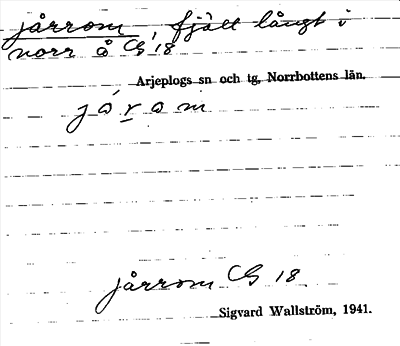 jårrom, fjäll långt i
norr å CG 18
Arjeplogs sn och tg, Norrbottens län.
járam
jårrom CG 18
Sigvard Wallström, 1941.